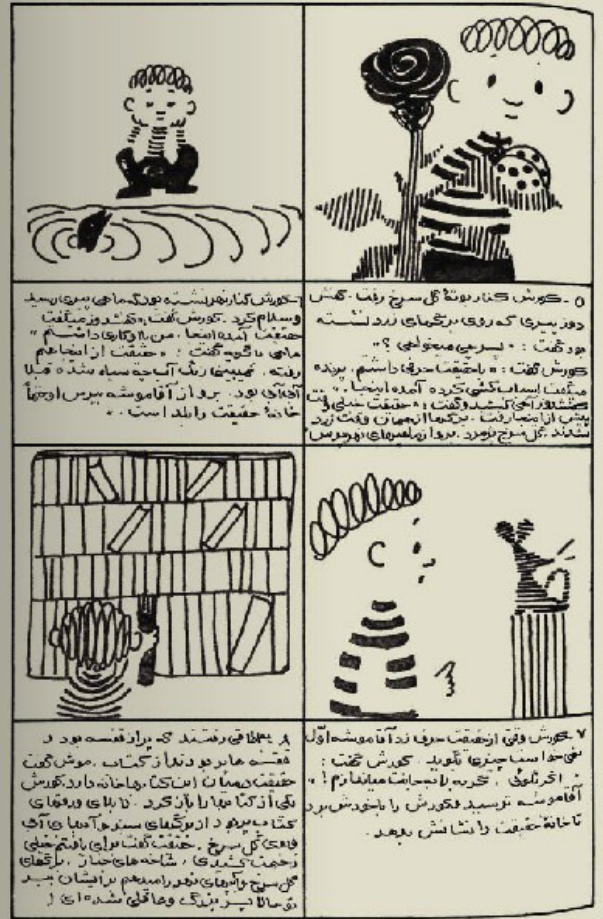 ۵ - کورش کنار بوتهٔ گل سرخ رفت. کفش
دوز پیری که روی برگهای زرد نشسته
بود گفت: «پسر چی میخواهی؟»
کورش گفت: «با حقیقت حرفی داشتم. پرنده
میگفت اسباب کشی کرده آمده اینجا.»
کفشدوز آهی کشید و گفت: «حقیقت خیلی وقت
پیش از اینجا رفت. برگها از همان وقت زرد
شدند. گل سرخ پژمرد. برو از ماهیهای نهر بپرس.»
کورش کنار نهر نشسته بود که ماهی پیری رسید
و سلام کرد. کورش گفت: «کفشدوز میگفت
حقیقت آمده اینجا. من با او کاری داشتم.»
ماهی با گفت: «حقیقت از اینجا هم
رفته. نمیبینی رنگ آب چه سیاه شده قبلا
آبی آبی بود. برو از آقا موشه بپرس او حتماً
خانهٔ حقیقت را بلد است.»
۷ کورش وقتی از حقیقت حرف زد آقا موشه اوّل
نمی خواست چیزی بگوید. کورش گفت:
اگر نگوئی، گربه را به جانت میاندازم!»
آقا موشه ترسید و کورش را با خودش برد
تا خانهٔ حقیقت را نشانش بدهد.
۸ به اطاقی رفتند که پر از قفسه بود و
قفسه ها پر بودند از کتاب. موش گفت
حقیقت در میان این کتابها خانه دارد. کورش
یکی از کتابها را باز کرد. لابلای ورقهای
کتاب پر بود از برگهای سبز و آبهای آبی
گل سرخ. حقیقت گفت برای یافتنم خیلی
زحمت کشیدی، شاخه های چنار، برگهای
گل سرخ و آبهای نهر را میدهم برایشان ببر
تو حالا پسر بزرگ و عاقلی شده ای!